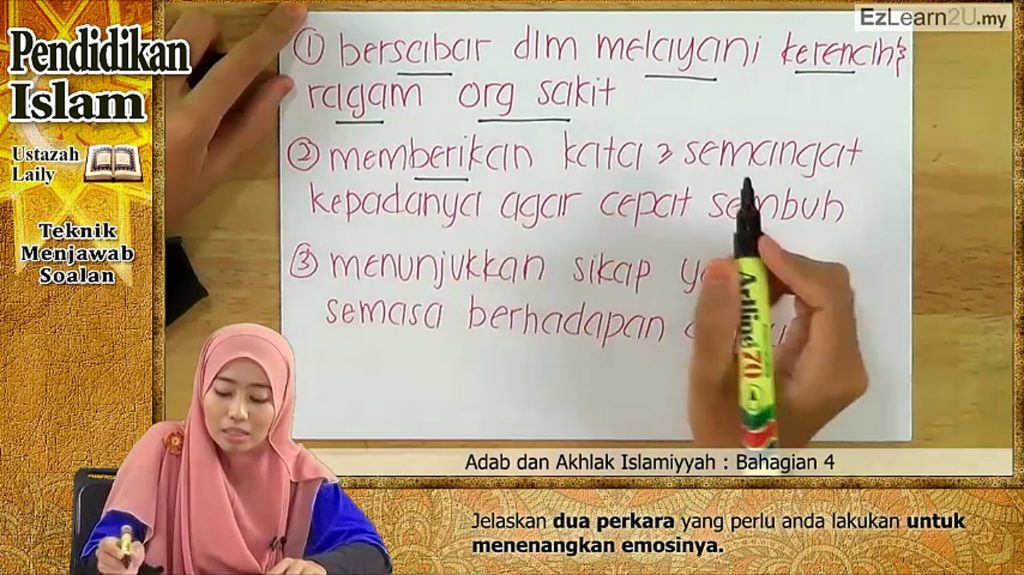 EzLearn2U.my
Pendidikan
Islam
Ustazah
Laily
Teknik
Menjawab
Soalan
① bersabar dlm melayani kerencih²
ragam org sakit
② memberikan kata² semangat
kepadanya agar cepat sembuh
③ menunjukkan sikap
semasa berhadapan
Adab dan Akhlak Islamiyyah : Bahagian 4
Jelaskan dua perkara yang perlu anda lakukan untuk
menenangkan emosinya.
Artline 70